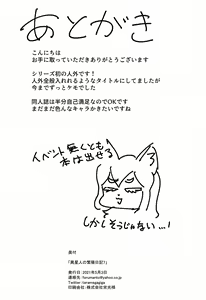 あとがき
こんにちは
お手に取っていただきありがとうございます
シリーズ初の人外です！
人外全般入れれるようなタイトルにしてましたが
今までずっとケモでした
同人誌は半分自己満足なのでOKです
まだまだ色んなキャラかきたいですね
イベント無くとも
本は出せる
しかしそうじゃない…！
奥付
発行日：2021年5月3日